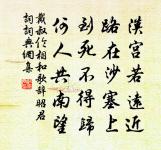 漢宮若遠近
路在沙塞上
到死不得歸
何人共南望
戴叔伦相和歌辞昭君
詞詞典網集